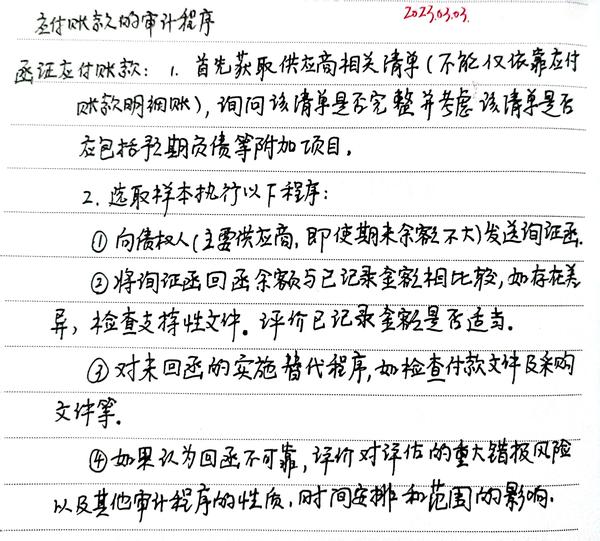 应付账款的审计程序
2023.03.03.
函证应付账款：1. 首先获取供应商相关清单(不能仅依靠应付
账款明细账)，询问该清单是否完整并考虑该清单是否
应包括预期负债等附加项目。
2. 选取样本执行以下程序：
①向债权人(主要供应商，即使期末余额不大)发送询证函.
②将询证函回函余额与已记录金额相比较，如存在差
异，检查支持性文件。评价已记录金额是否适当。
③对未回函的实施替代程序，如检查付款文件及采购
文件等.
④如果认为回函不可靠，评价对评估的重大错报风险
以及其他审计程序的性质、时间安排和范围的影响.